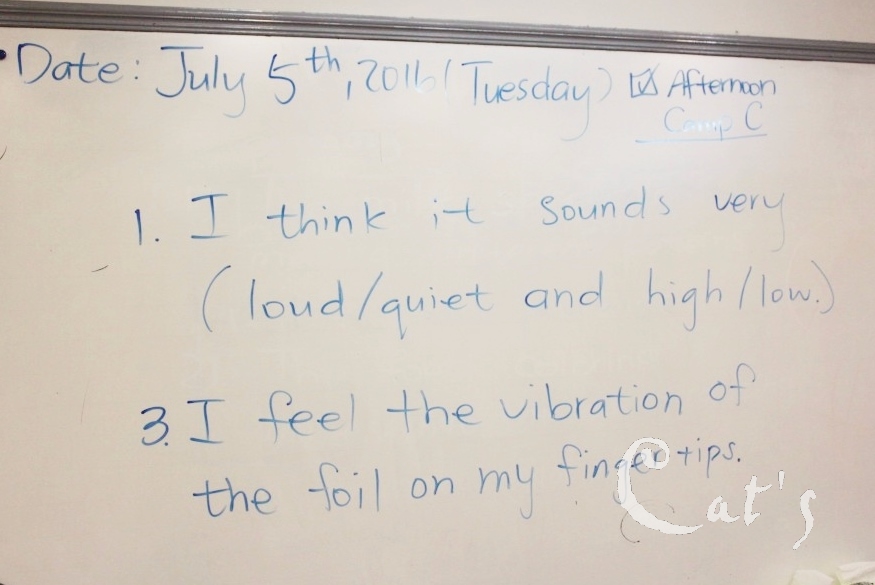 Date: July 5th, 2016 (Tuesday) ☑ Afternoon
Camp C
1. I think it sounds very
(loud/quiet and high/low.)
3. I feel the vibration of
the foil on my fingertips.
Cat's